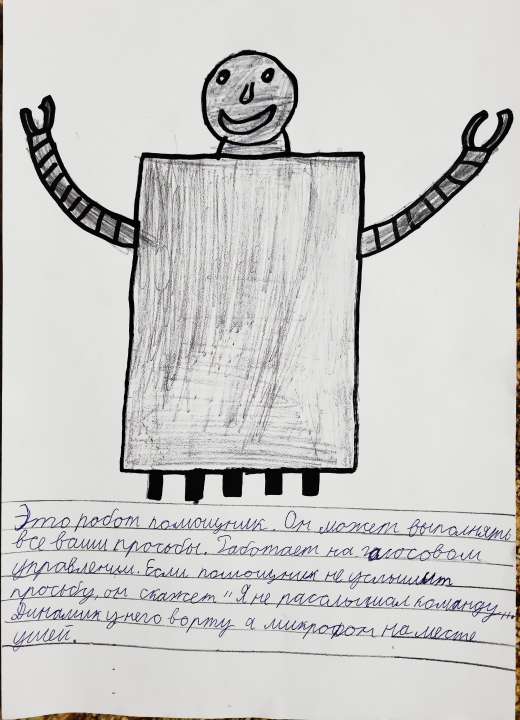 Это робот помощник. Он может выполнять
все ваши прозьбы. Работает на голосовом
управлении. Если помощник не услышит
прозьбу, он скажет "Я не расслышал команду".
Динамик у него ворту а микрофон на месте
ушей.